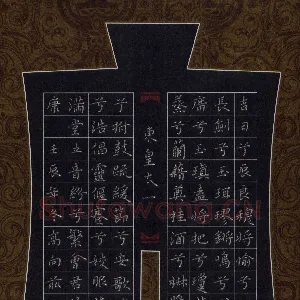 吉日兮辰良穆將愉兮
長劍兮玉珥璆鏘鳴兮
席兮玉瑱盍將把兮瓊
蒸兮蘭藉奠桂酒兮
東皇太一
兮拊鼓疏緩節兮安歌
兮浩倡靈偃蹇兮姣服
滿堂五音紛兮繁會君
康壬辰年冬高向前